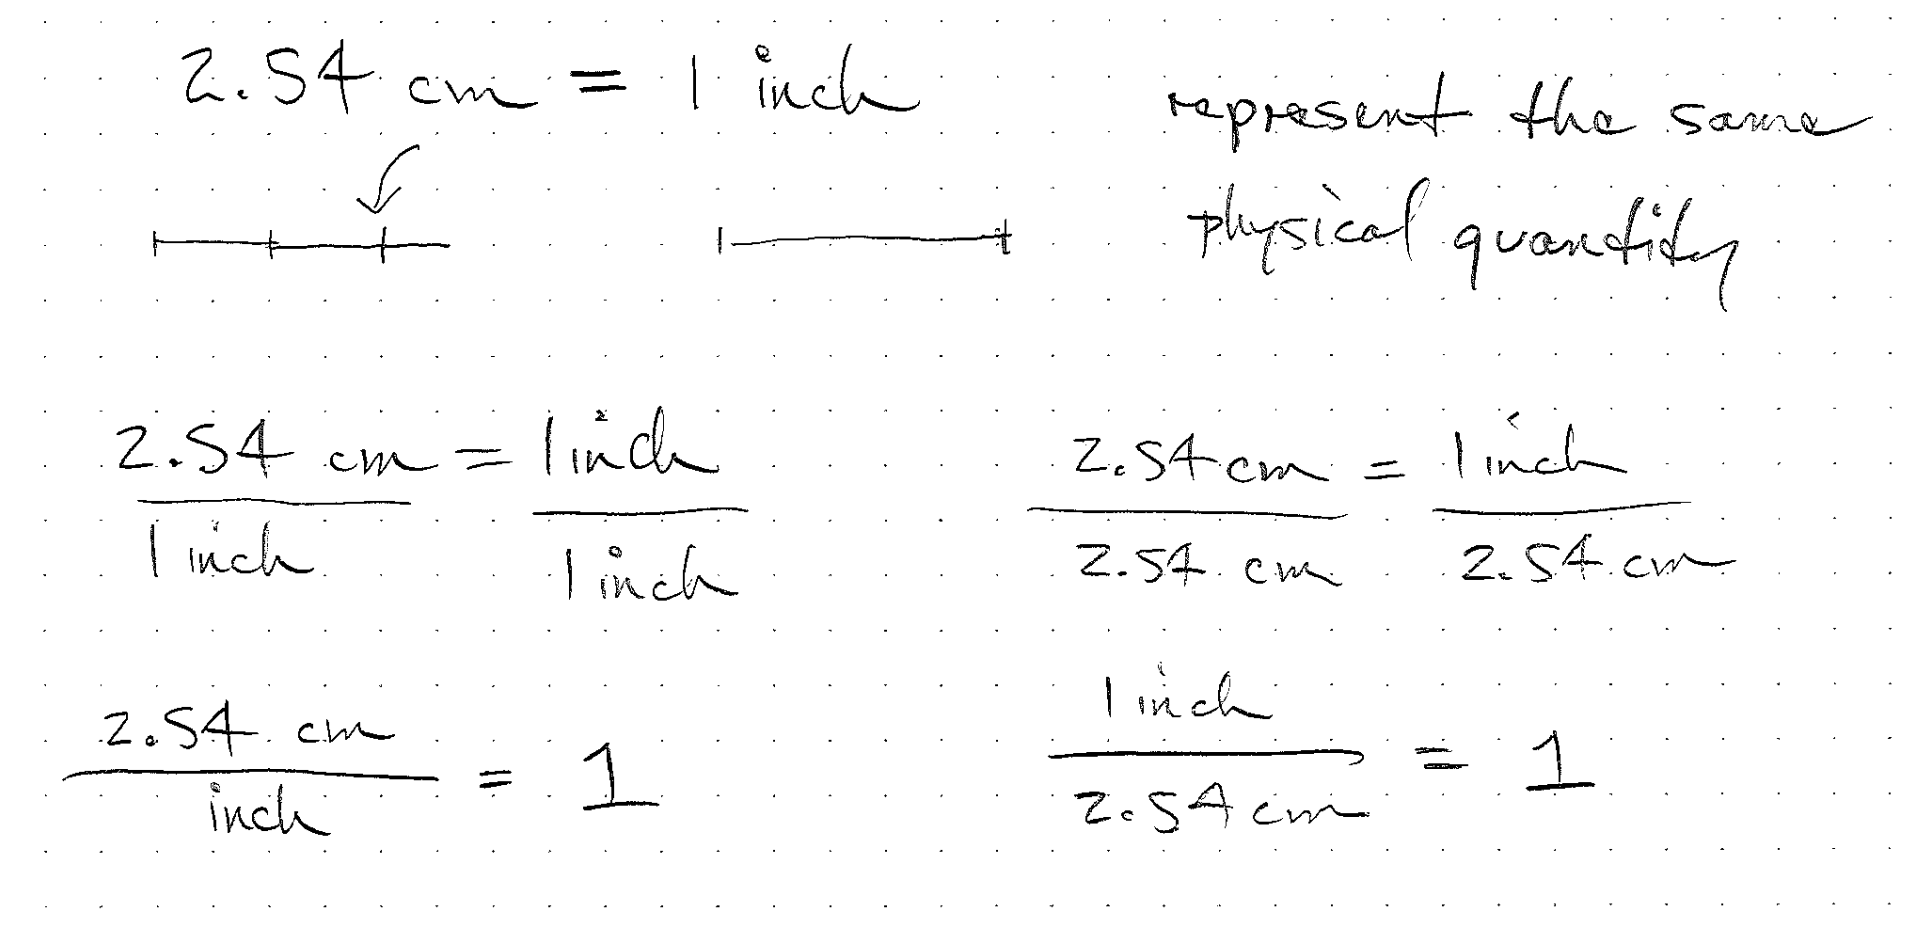 2.54 cm = 1 inch
represent the same
physical quantity
2.54 cm = 1 inch
1 inch 1 inch
2.54 cm = 1 inch
2.54 cm 2.54 cm
2.54 cm
inch
= 1
1 inch
2.54 cm
= 1